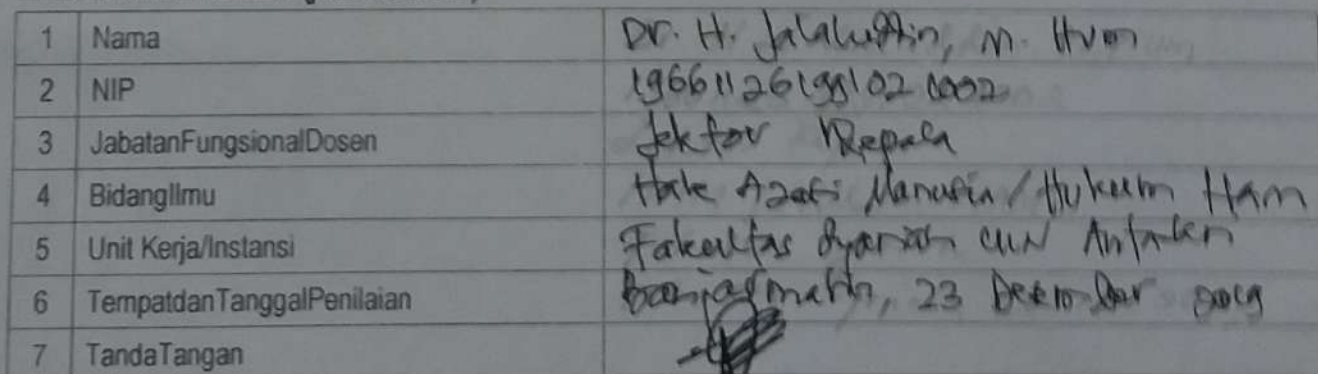 1 Nama Dr. H. Jalaluddin, M. Hum
2 NIP 19661126199102 1002
3 JabatanFungsionalDosen Lektor Kepala
4 BidangIlmu Hak Azasi Manusia / Hukum Ham
5 Unit Kerja/Instansi Fakultas Syariah UIN Antasari
6 TempatdanTanggalPenilaian Banjarmasin, 23 Desember
7 TandaTangan